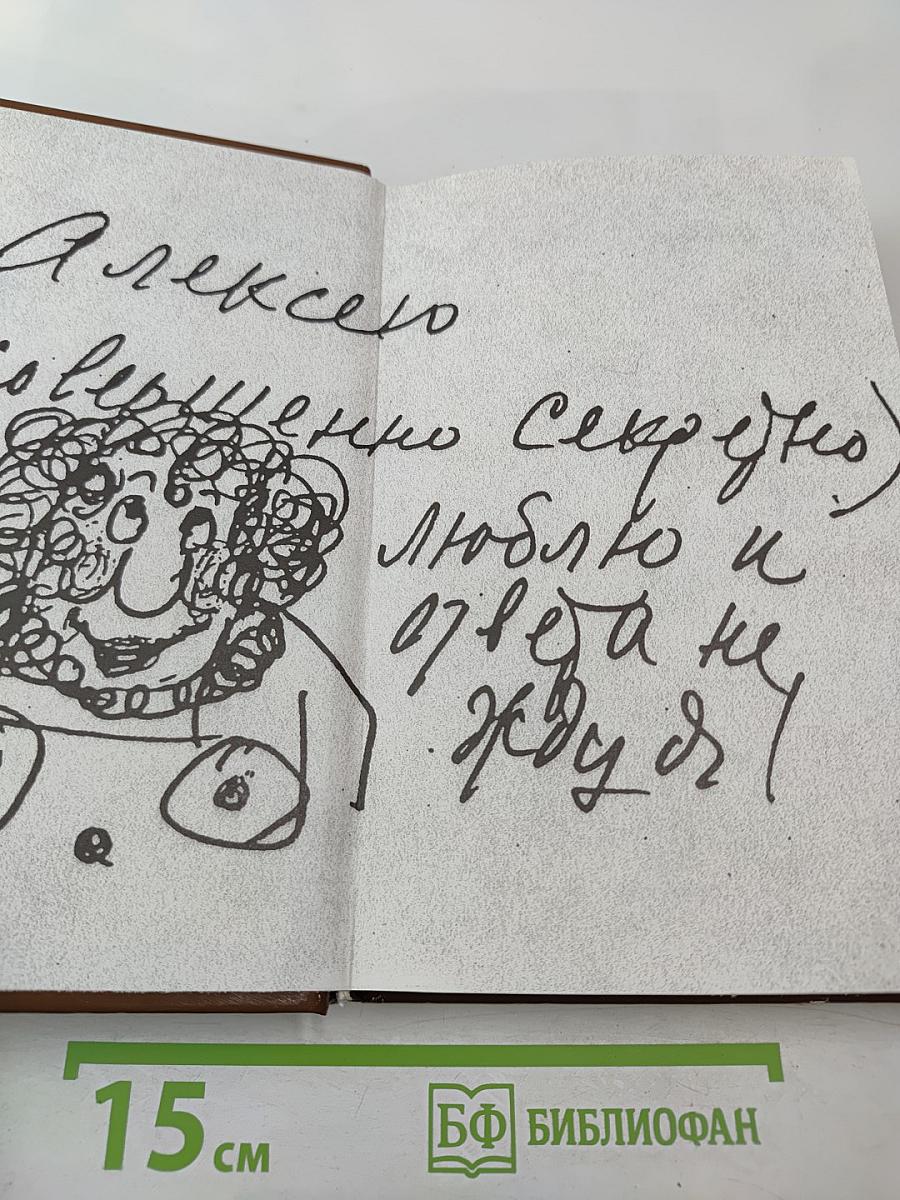 Алексею
совершенно секретно)
люблю и
ответа не
жду я!
15 см
БФ БИБЛИОФАН